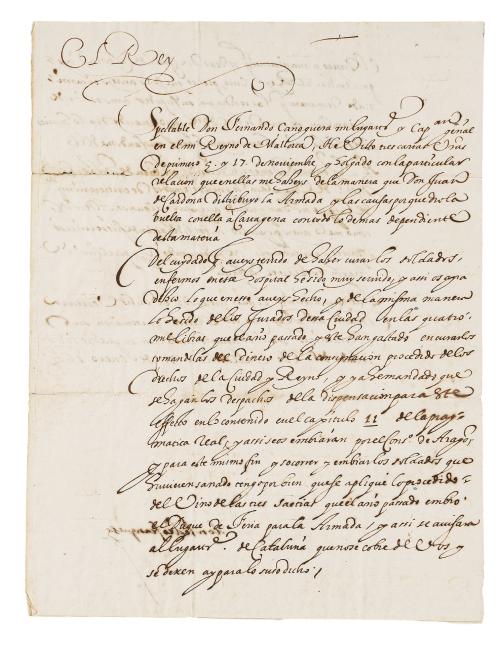 El Rey
Spectable Don Fernando Canoguera mi lugart.te y Cap.an general
en el mi Reyno de Mallorca, He visto tres cartas vras
de primero 5. y 17. de noviembre, y holgado con la particular
relacion que en ellas me haveys de la manera que Don Juan
de Cardona distribuyo la Armada, y las causas porque dio la
buelta con ella a Cartagena con todo lo demas dependiente
desta materia
Del cuydado q. aveys tenido de hazer curar los soldados
enfermos en esse hospital he sido muy servido, y assi os agra
dezco lo que en esto aveys hecho, y de la misma manera
lo he sido de los Jurados dessa Ciudad, en las quatro
mil libras que el año passado y este han gastado en curarlos
tomandolas del dinero de la consignacion procedido de los
drechos de la Ciudad y Reyno, y ya he mandado que
se hagan los despachos de la dispensacion para este
effeto en lo contenido en el capitulo 11 de la prag
matica real, y assi se os embiaran por el Cons.o de Aragon,
y para este mismo fin, y socorrer y embiar los soldados que
huvieren sanado tengo por bien que se aplique lo procedido
del vino de las tres saetias que el año passado embio
el Duque de Feria para la Armada, y assi se avisara
al lugart.te de Cataluña que no se cobre de vos y
se dexen ay para lo susodicho,